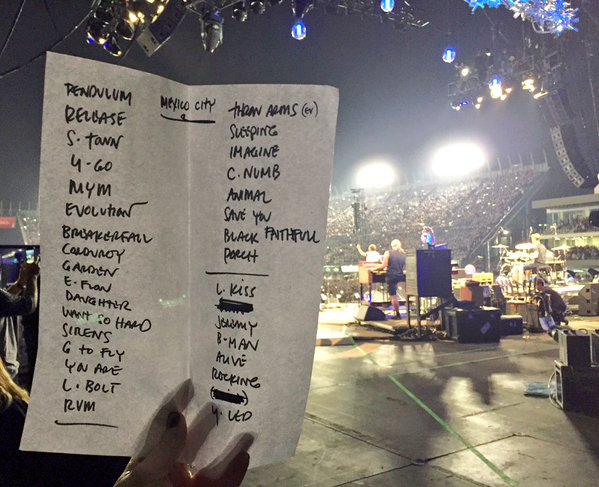 MEXICO CITY
PENDULUM
RELEASE
S. TOWN
U-GO
MYM
EVOLUTION
BREAKERFALL
CORDUROY
GARDEN
E. FLOW
DAUGHTER
WANT SO HARD
SIRENS
G TO FLY
YOU ARE
L. BOLT
RVM
THRAN ARMS (EV)
SLEEPING
IMAGINE
C. NUMB
ANIMAL
SAVE YOU
BLACK FAITHFULL
PORCH
L. KISS
JEREMY
B-MAN
ALIVE
ROCKING
Y. LED